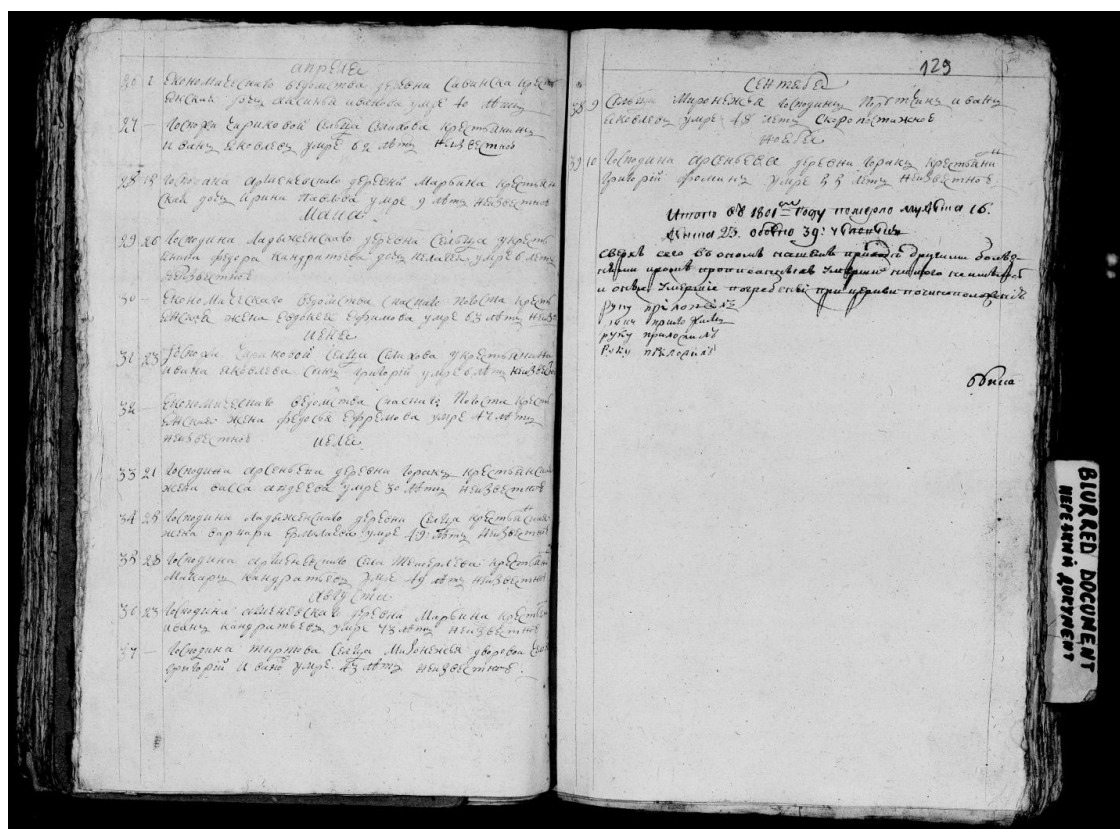 Апрелѣ
26 2 Економическаго ведомства деревни Савинска крестья
енская доч Аксинья Иванова умре 40 летъ
27 — Госпожи Чариковой сельца Селихова крестьянинъ
Иванъ Яковлевъ умре 62 летъ неизвестно
28 Господина деревни Марьина крестьян
ская доч Ирина Павлова умре 9 летъ неизвестно
Маиа
29 Господина Ладыженскаго деревни Сельца у крестья
нина Федора Кандратьева доч умре 6 летъ
неизвестно
30 Економическаго ведомства Спаскаго Погоста крестья
енская жена Евдокея Ефимова умре 63 летъ неизв
Июне
31 23 Госпожи Чариковой сельца Селихова у крестьянина
Ивана Яковлева сынъ Григорий умре 6 летъ неизвес
32 — Економическаго ведомства Спаскаго Погоста кресть
енская жена Федосья Ефремова умре 47 летъ
неизвестно
Июле
33 21 Господина Арсеньева деревни Горакъ крестьянска
жена Васса Андеева умре 30 летъ неизвестно
34 25 Господина Ладыженскаго деревни Сельца крестьянска
жена Варвара умре 49 летъ неизвестно
35 28 Господина села крестьяни
Макаръ Кандратьевъ умре 49 летъ неизвестно
Августа
36 23 Господина деревни Марьина кресть
Иванъ Кандратьевъ умре 73 летъ неизвестно
37 — Господина Тыртова сельца Миронежья дворовой
Григорий Иванов умре 43 летъ неизвестно
129
Сентебре
38 9 Сельца Миронежья господинъ Порутчикъ Иванъ
Яковлевъ умре 48 летъ скоропостижно
Ноебре
39 10 Господина Арсеньева деревни Горакъ крестьянинъ
Григорий Фоминъ умре 55 летъ неизвестно
Итого въ 1801м году померло мужеска 16.
женска 23. обоево 39: человекъ
Сверхъ сего въ ономъ нашемъ приходе другими болез
ньми противъ прописанныхъ умершихъ никого не имеется
и оные умершие погребены при церкви по чиноположению
руку приложилъ
руку приложилъ
руку приложилъ
BLURRED DOCUMENT
НЕРЕЗКИЙ ДОКУМЕНТ